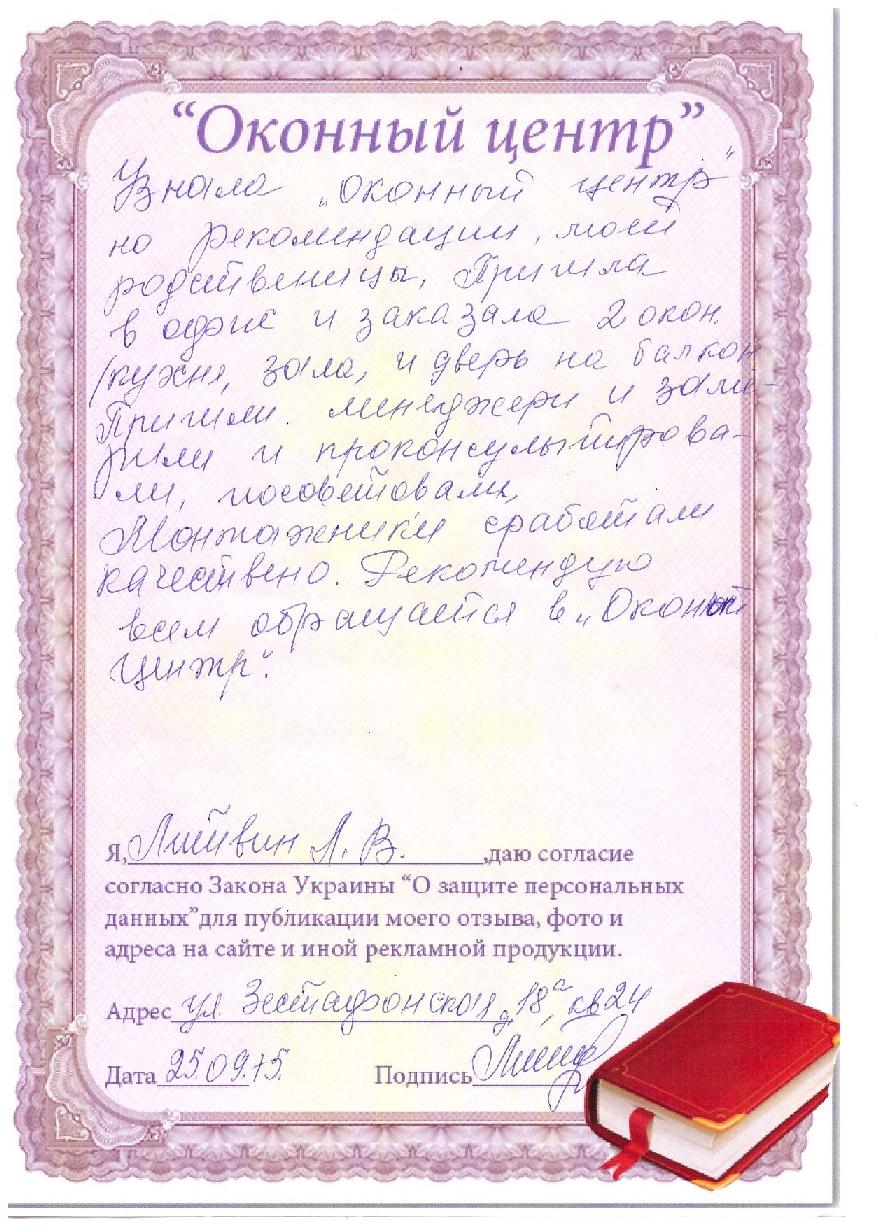 “Оконный центр”
Узнала „Оконный центр”
по рекомендации, моей
родственицы. Пришла
в офис и заказала 2 окон.
(кухня, зала, и дверь на балкон
Пришли менеджери и заме-
рили и проконсультирова-
ли, посоветовали,
Монтажники сработали
качествено. Рекомендую
всем обращаться в „Оконный
центр”.
Я, Литвин Л. В. ,даю согласие
согласно Закона Украины “О защите персональных
данных”для публикации моего отзыва, фото и
адреса на сайте и иной рекламной продукции.
Адрес ул. Зестафонская д. 18а, кв 24
Дата 25.09.15. Подпись